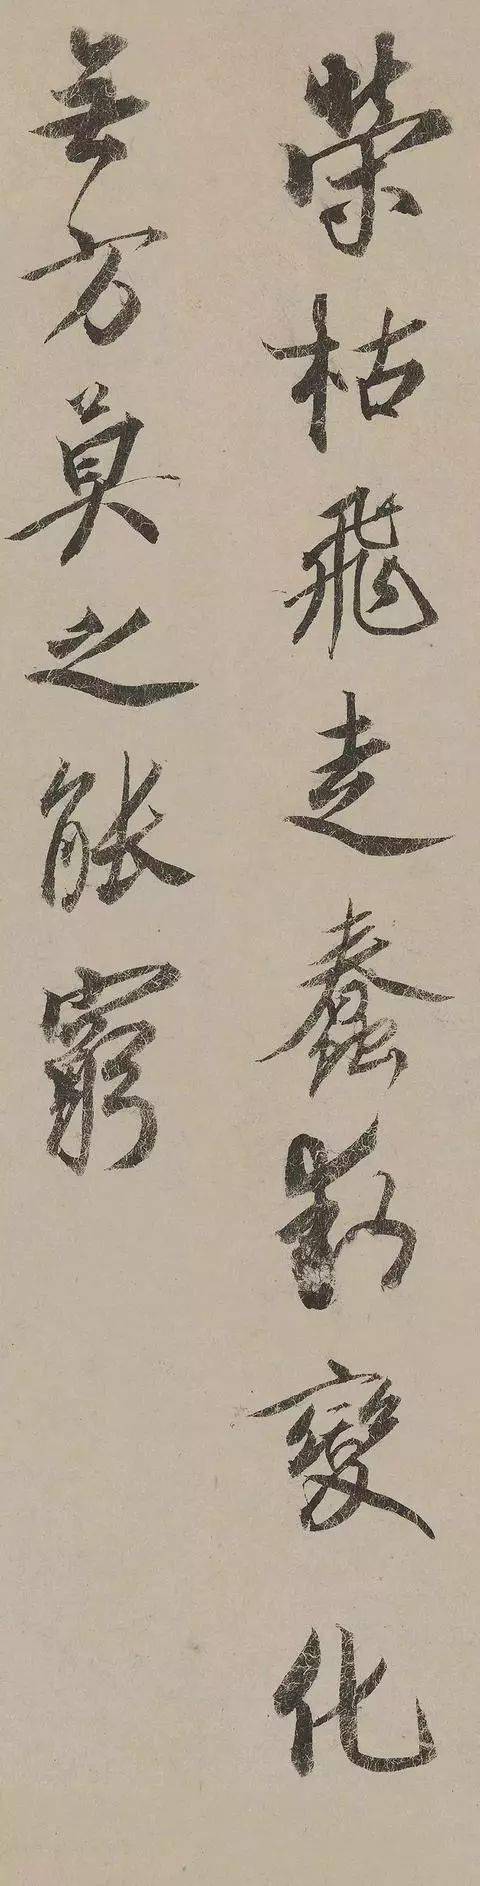 榮枯飛走蠢動變化
無方莫之能窮